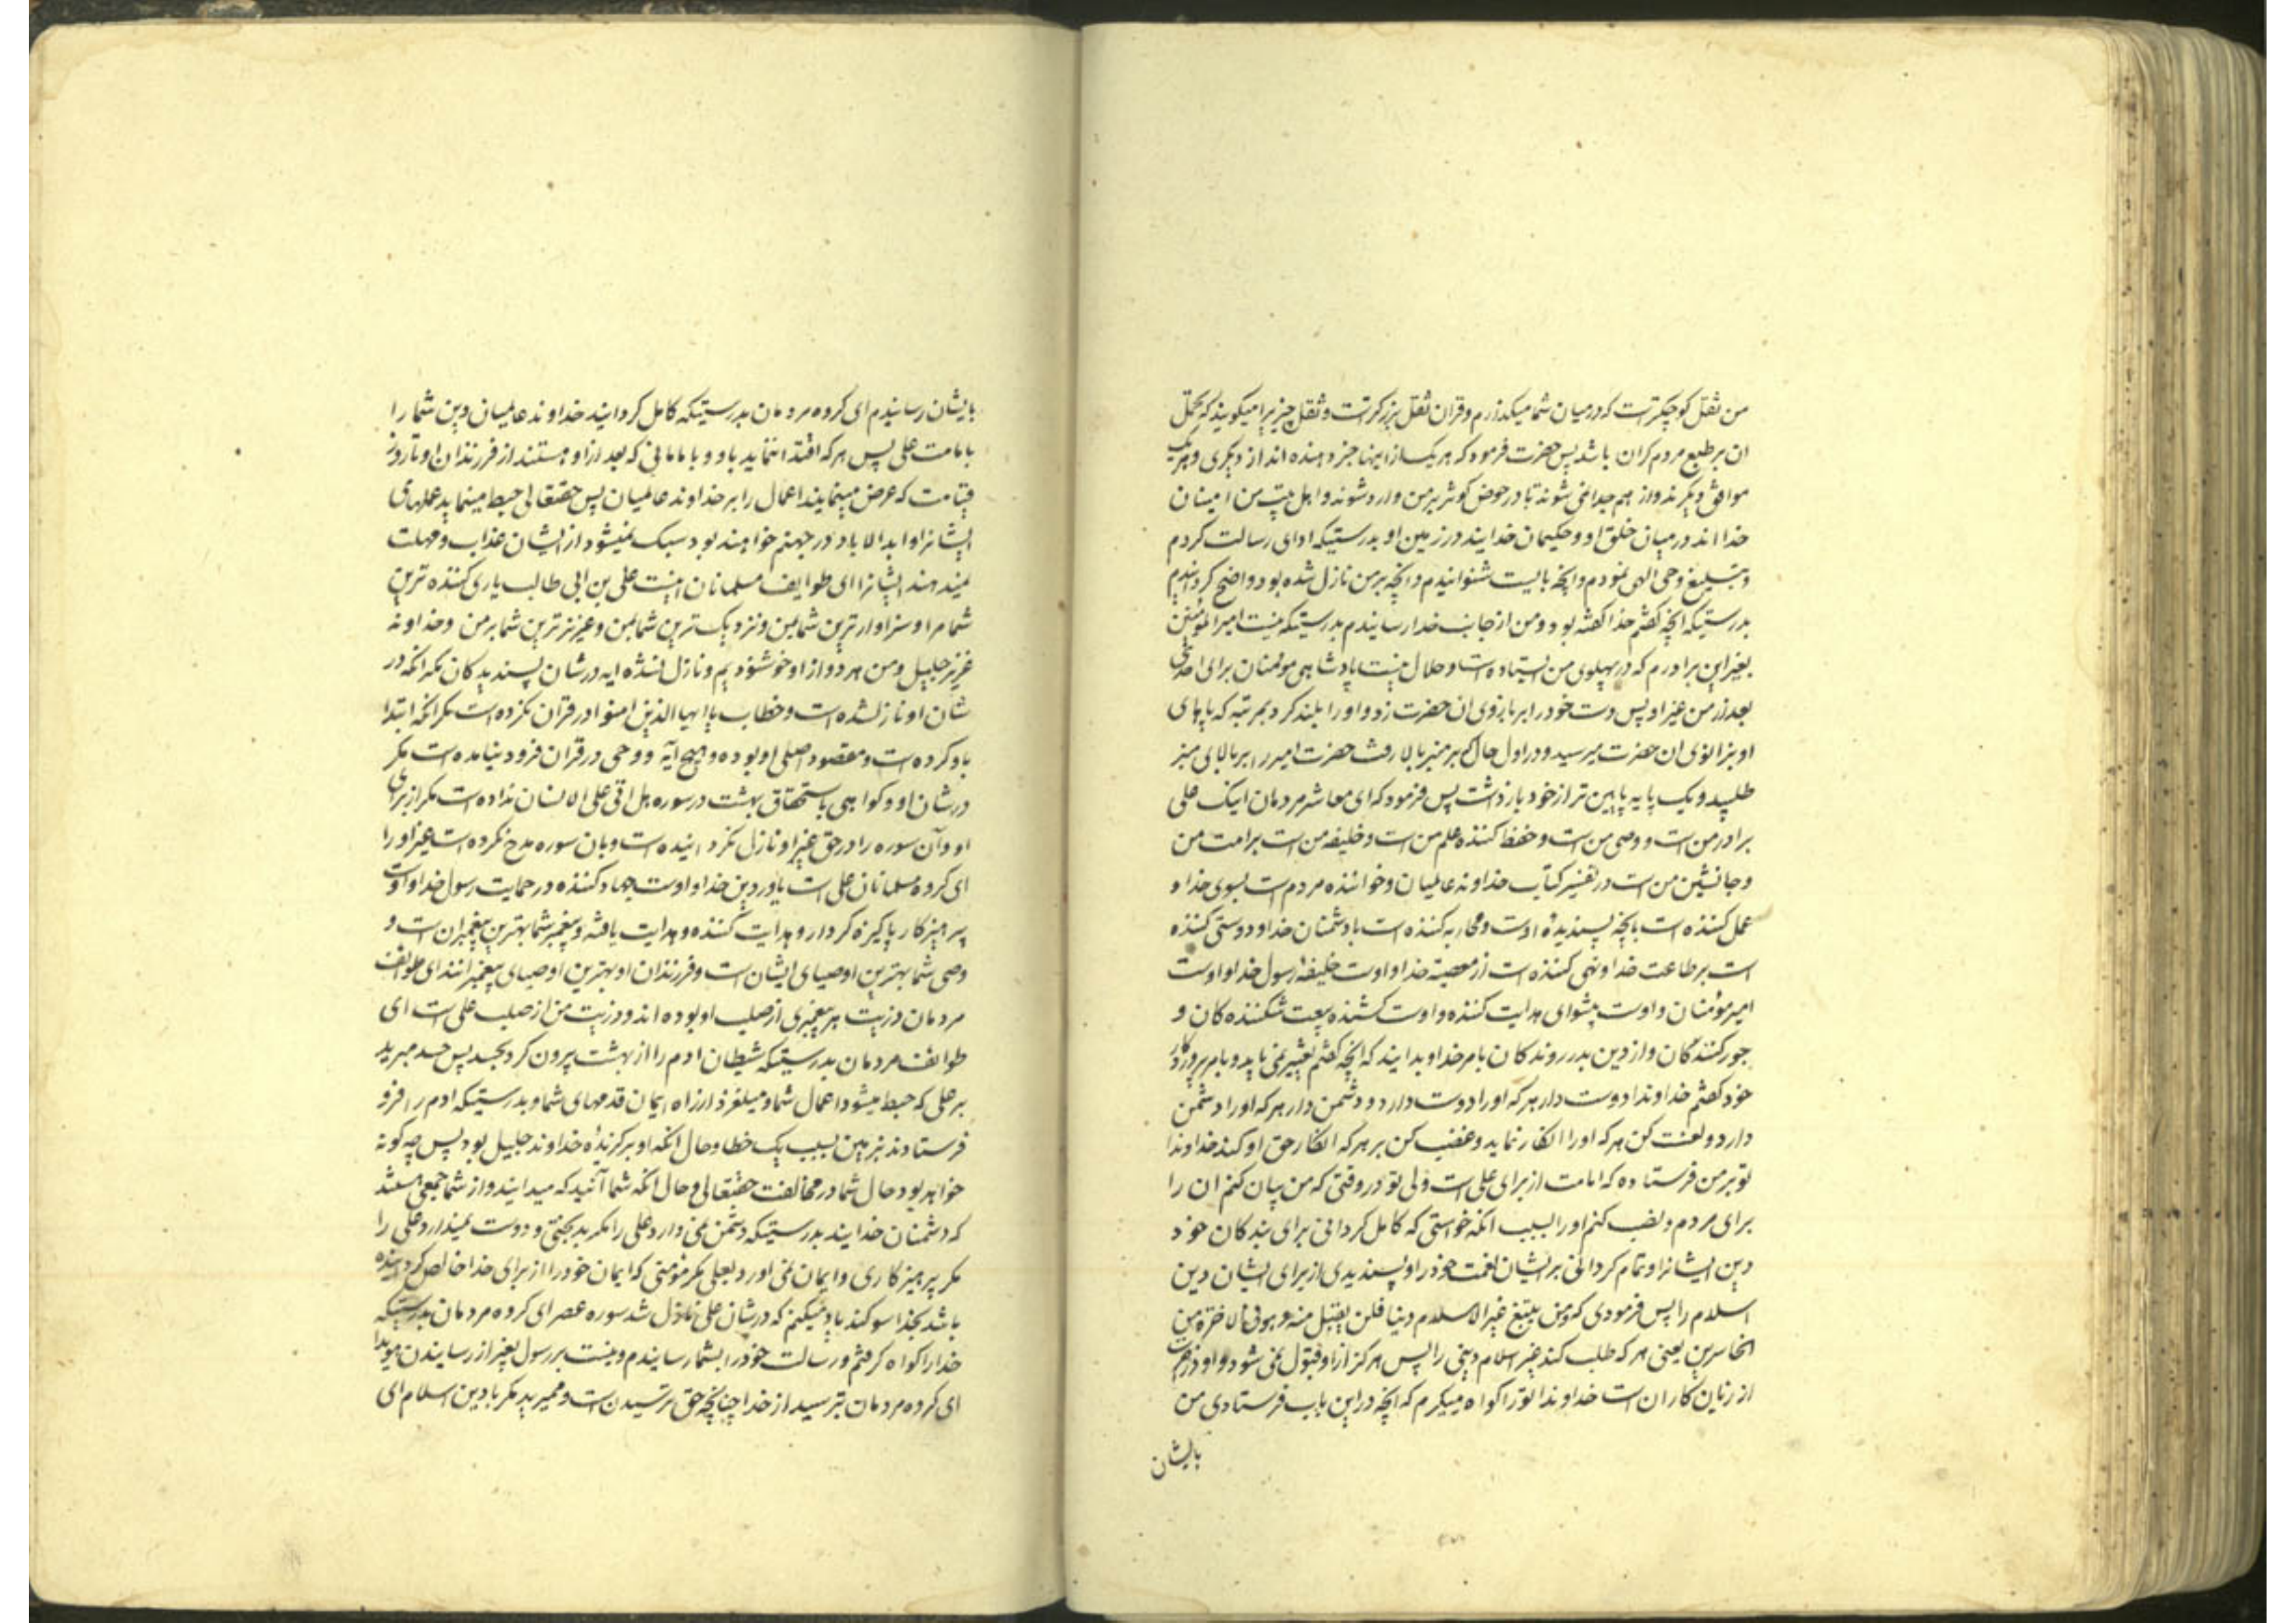 من ثقل کوچکترست که درمیان شما میگذرم و قران ثقل بزرکترست و ثقل چیزیرا میکویند که تحمل
ان بر طبع مردم کران باشد پس حضرت فرمود که هر یک از اینها خبر دهنده اند از دیکری و هر یک
موافق دیکرند و از هم جدا نمی شوند تا در حوض کوثر بر من وارد شوند و اهل بیت من امینان
خدا اند در میان خلق او و حکیمان خدایند در زمین او بدرستیکه ادای رسالت کردم
و تبلیغ وحی الهی نمودم و انچه بایست شنوانیدم و انچه بر من نازل شده بود واضح کردانیدم
بدرستیکه انچه کفتم خدا کفته بود و من از جانب خدا رسانیدم بدرستیکه نیست امیرالمؤمنین
بغیر این برادرم که در پهلوی من ایستاده است و حلال نیست پادشاهی مومنان برای احدی
بعد از من غیر او پس دست خود را بر بازوی ان حضرت زد و او را بلند کرد بمرتبه که پاهای
او بزانوی ان حضرت میرسید و در اول حال که بر منبر بالا رفت حضرت امیر را بر بالای منبر
طلبید و یک پایه پایین تر از خود بازداشت پس فرمود که ای معاشر مردمان اینک علی
برادر من است و وصی من است و حفظ کننده علم من است و خلیفه من است بر امت من
و جانشین من است در تفسیر کتاب خداوند عالمیان و خواننده مردم است بسوی خدا و
عمل کننده است بانچه پسندیدهٔ اوست و محاربه کننده است با دشمنان خدا و دوستی کننده
است بر طاعت خدا و نهی کننده است از معصیة خدا و اوست خلیفهٔ رسول خدا و اوست
امیر مؤمنان و اوست پیشوای هدایت کننده و اوست کشنده بیعت شکننده کان و
جور کنندکان و از دین بدر روندکان بامر خدا و بدانید که انچه کفتم تغییر نمی یابد و بامر پروردکار
خود کفتم خداوندا دوست دار هر که او را دوست دارد و دشمن دار هر که او را دشمن
دارد و لعنت کن هر که او را انکار نماید و غضب کن بر هر که انکار حق او کند خداوندا
تو بر من فرستاده که امامت از برای علی است ولی تو در وقتی که من بیان کنم ان را
برای مردم و نصب کنم او را بسبب انکه خواستی که کامل کردانی برای بندکان خود
دین ایشانرا و تمام کردانی بر ایشان نعمت خود را و پسندیدی از برای ایشان دین
اسلام را پس فرمودی که ومن یبتغ غیر الاسلام دینا فلن یقبل منه و هو فی الاخرة من
الخاسرین یعنی هر که طلب کند غیر اسلام دینی را پس هرکز از او قبول نمی شود و او در اخرت
از زیان کاران است خداوندا تو را کواه میکیرم که انچه در این باب فرستادی من
بایشان
بایشان رسانیدم ای کروه مردمان بدرستیکه کامل کردانید خداوند عالمیان دین شما را
بامامت علی پس هر که اقتدا ننماید باو و با امامانی که بعد از او هستند از فرزندان او تا روز
قیامت که عرض مینمایند اعمال را بر خداوند عالمیان پس حقتعالی حبط مینماید عملهای
ایشانرا و ابدالاباد در جهنم خواهند بود سبک نمیشود از ایشان عذاب و مهلت
نمیدهند ایشانرا ای طوایف مسلمانان اینست علی بن ابی طالب یاری کننده ترین
شما مرا و سزاوارترین شما بمن و نزدیک ترین شما بمن و عزیزترین شما بر من و خداوند
عزیز جلیل و من هر دو از او خوشنودیم و نازل نشده ایه در شان پسندیدکان مکر انکه در
شان او نازلشده است و خطاب یا ایها الذین امنوا در قران نکرده است مکر انکه ابتدا
باو کرده است و مقصود اصلی او بوده و هیچ آیه و وحی در قران فرود نیامده است مکر
در شان او و کواهی باستحقاق بهشت در سوره هل اتی علی الانسان نداده است مکر از برای
او و آن سوره را در حق غیر او نازل نکردانیده است و بان سوره مدح نکرده است غیر او را
ای کروه مسلمانان علی است یاور دین خدا و اوست جهاد کننده در حمایت رسول خدا و اوست
پرهیزکار پاکیزه کردار و هدایت کننده و هدایت یافته و پیغمبر شما بهترین پیغمبران است و
وصی شما بهترین اوصیای ایشان است و فرزندان او بهترین اوصیای پیغمبرانند ای طوائف
مردمان ذریت هر پیغمبری از صلب او بوده اند و ذریت من از صلب علی است ای
طوائف مردمان بدرستیکه شیطان ادم را از بهشت بیرون کرد بحسد پس حسد مبرید
بر علی که حبط میشود اعمال شما و میلغزد از راه ایمان قدمهای شما و بدرستیکه ادم را فرو
فرستادند بزمین بسبب یک خطا و حال انکه او برکزیدهٔ خداوند جلیل بود پس چه کونه
خواهد بود حال شما در مخالفت حقتعالی و حال انکه شما آنید که میدانید و از شما جمعی هستند
که دشمنان خدایند بدرستیکه دشمن نمی دارد علی را مکر بدبختی و دوست نمیدارد علی را
مکر پرهیزکاری و ایمان نمی اورد بعلی مکر مؤمنی که ایمان خود را از برای خدا خالص کردانیده
باشد بخدا سوکند یاد میکنم که در شان علی نازل شد سوره عصر ای کروه مردمان بدرستیکه
خدا را کواه کرفتم و رسالت خود را بشما رسانیدم و نیست بر رسول بغیر از رسانیدن هویدا
ای کروه مردمان بترسید از خدا چنانچه حق ترسیدن است و ممیرید مکر با دین اسلام ای